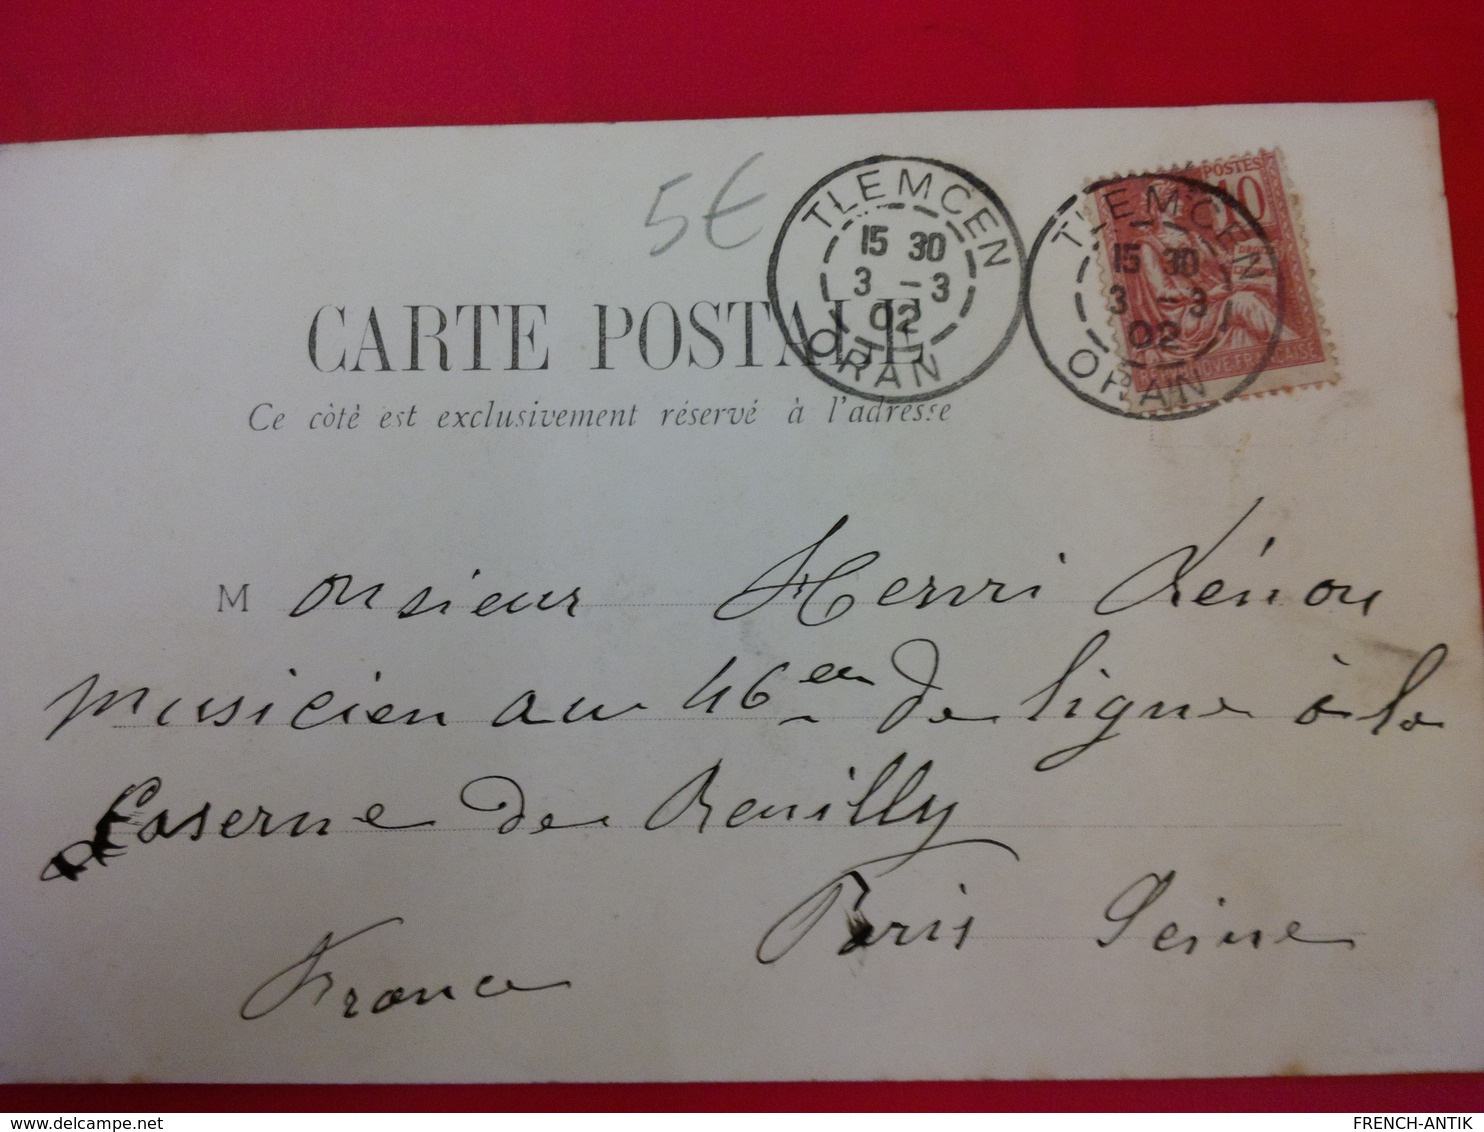 5€
TLEMCEN
15 30
3 - 3
02
ORAN
POSTES
10
REPUBLIQUE FRANÇAISE
TLEMCEN
15 30
3 - 3
02
ORAN
CARTE POSTALE
Ce côté est exclusivement réservé à l'adresse
Monsieur Henri Lénou
musicien au 46em de ligne à la
Caserne de Reuilly
Paris Seine
France
FRENCH-ANTIK